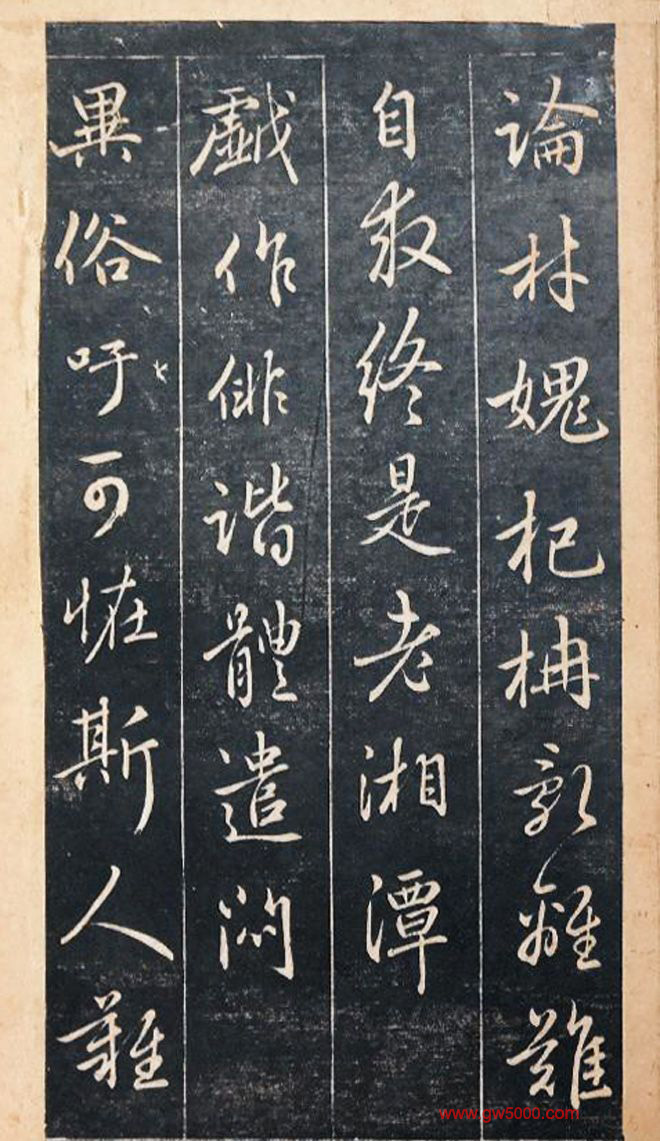 論材媿杞柟亂離難
自救終是老湘潭
戲作俳諧體遣悶
異俗吁可恠斯人難
www.gw5000.com